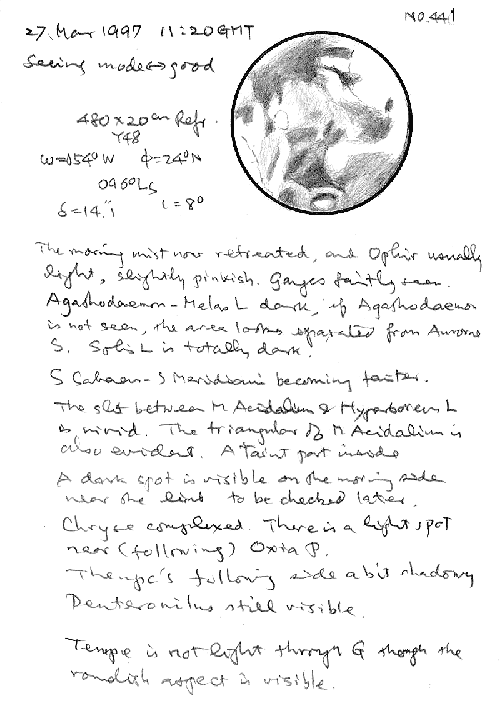 No.441
27. Mar 1997 11:20 GMT
Seeing mode↔good
480×20cm Refr.
Y48
ω=054°W φ=24°N
096°Ls
δ=14."1 ι=8°
The morning mist now retreated, and Ophir usually
light, slightly pinkish. Ganges faintly seen.
Agathodaemon-Melas L dark, if Agathodaemon
is not seen, the area looks separated from Aurorae
S. Solis L is totally dark.
S Sabaeus-S Meridiani becoming fainter.
The slit between M Acidalium & Hyperboreus L
is vivid. The triangular of M Acidalium is
also evident. A faint part inside
A dark spot is visible on the morning side
near the limb to be checked later.
Chryse complexed. There is a light spot
near (following) Oxia P.
The npc's following side a bit shadowy
Deuteronilus still visible.
Tempe is not light through G though the
roundish aspect is visible.